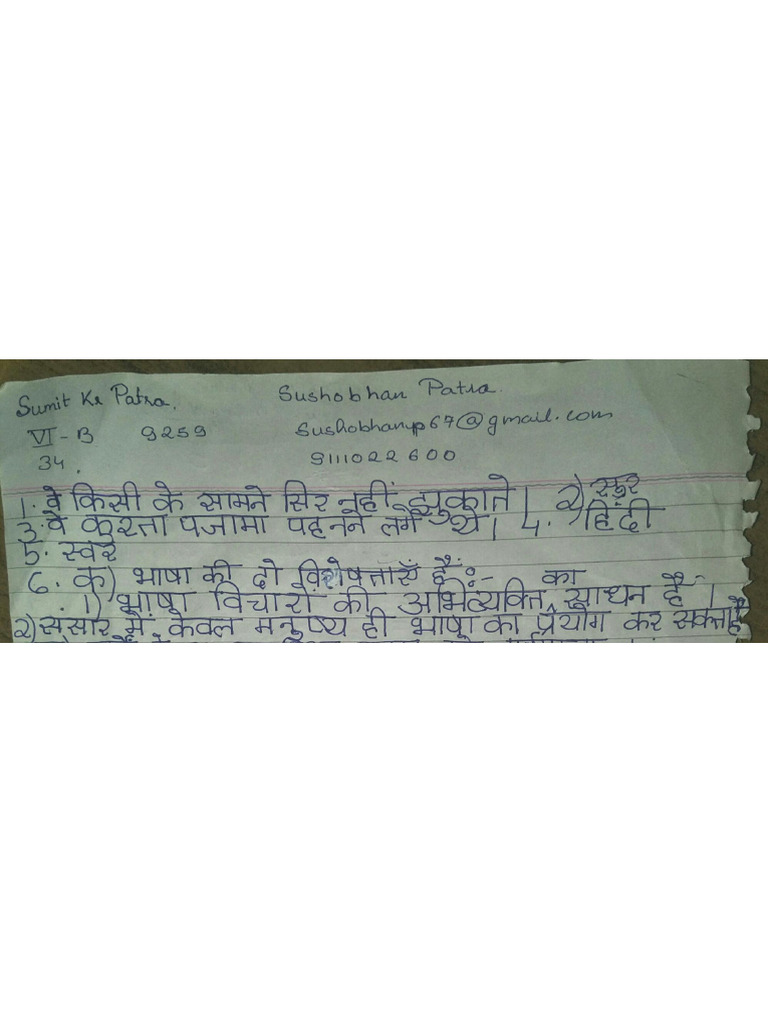 Sumit Kr Patra. Sushobhan Patra.
VI - B 9259 Sushobhanp67@gmail.com
34. 9111022600
1. वे किसी के सामने सिर नहीं झुकाते । 2)
3. वे कुरता पजामा पहनने लगे थे । 4. हिंदी
5. स्वर
6. क) भाषा की दो विशेषताएँ हैं :- का
1) भाषा विचारों की अभिव्यक्ति साधन है ।
2) संसार में केवल मनुष्य ही भाषा का प्रयोग कर सकता है